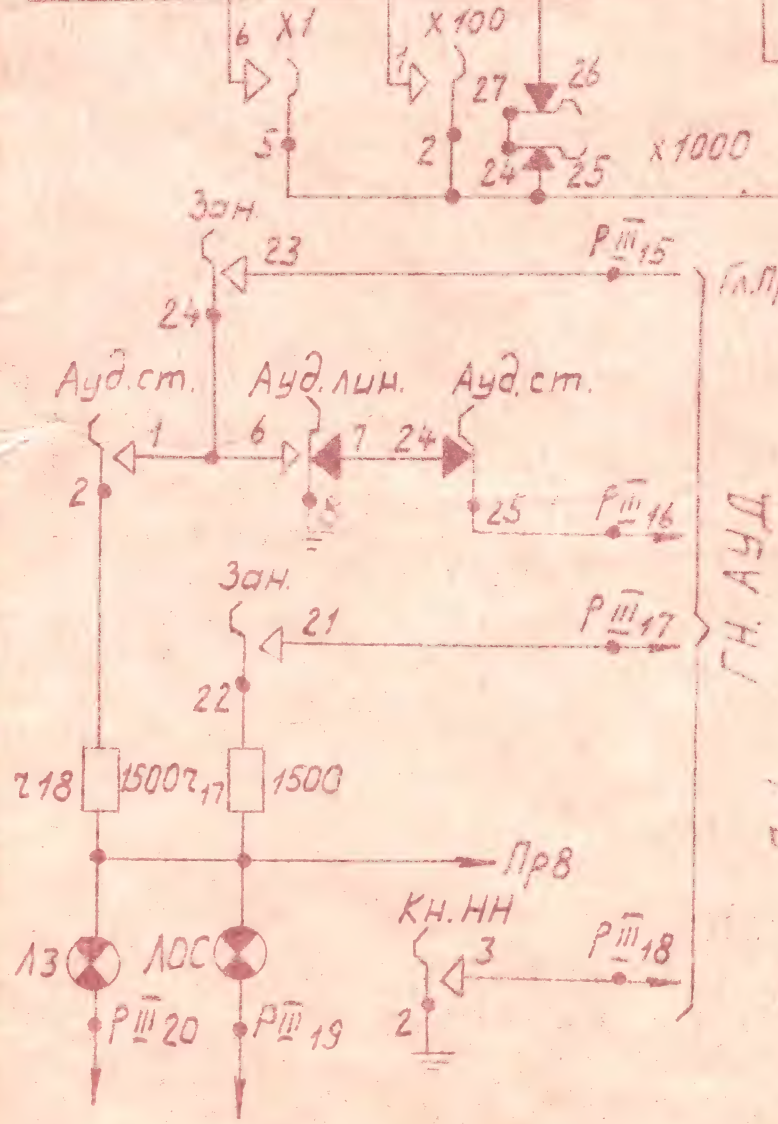 6 Х1 Х100
1 27 26
5 2 24 25 Х1000
Зан.
23 РIII15
24 Гл.Пр
Ауд.ст. Ауд.лин. Ауд.ст.
1 6 7 24
2 5 25 РIII16
ГН. АУД
Зан.
21 РIII17
22
ч18 1500 ч17 1500
Пр8
Кн.НН
ЛЗ ЛОС 3 РIII18
РIII20 РIII19 2